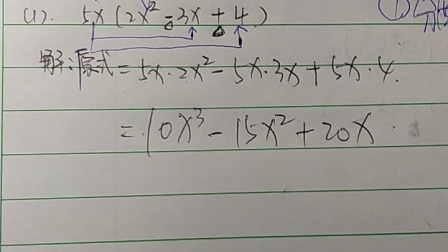 (1). 5x(2x²-3x+4)
解:原式=5x·2x²-5x·3x+5x·4.
=10x³-15x²+20x
①